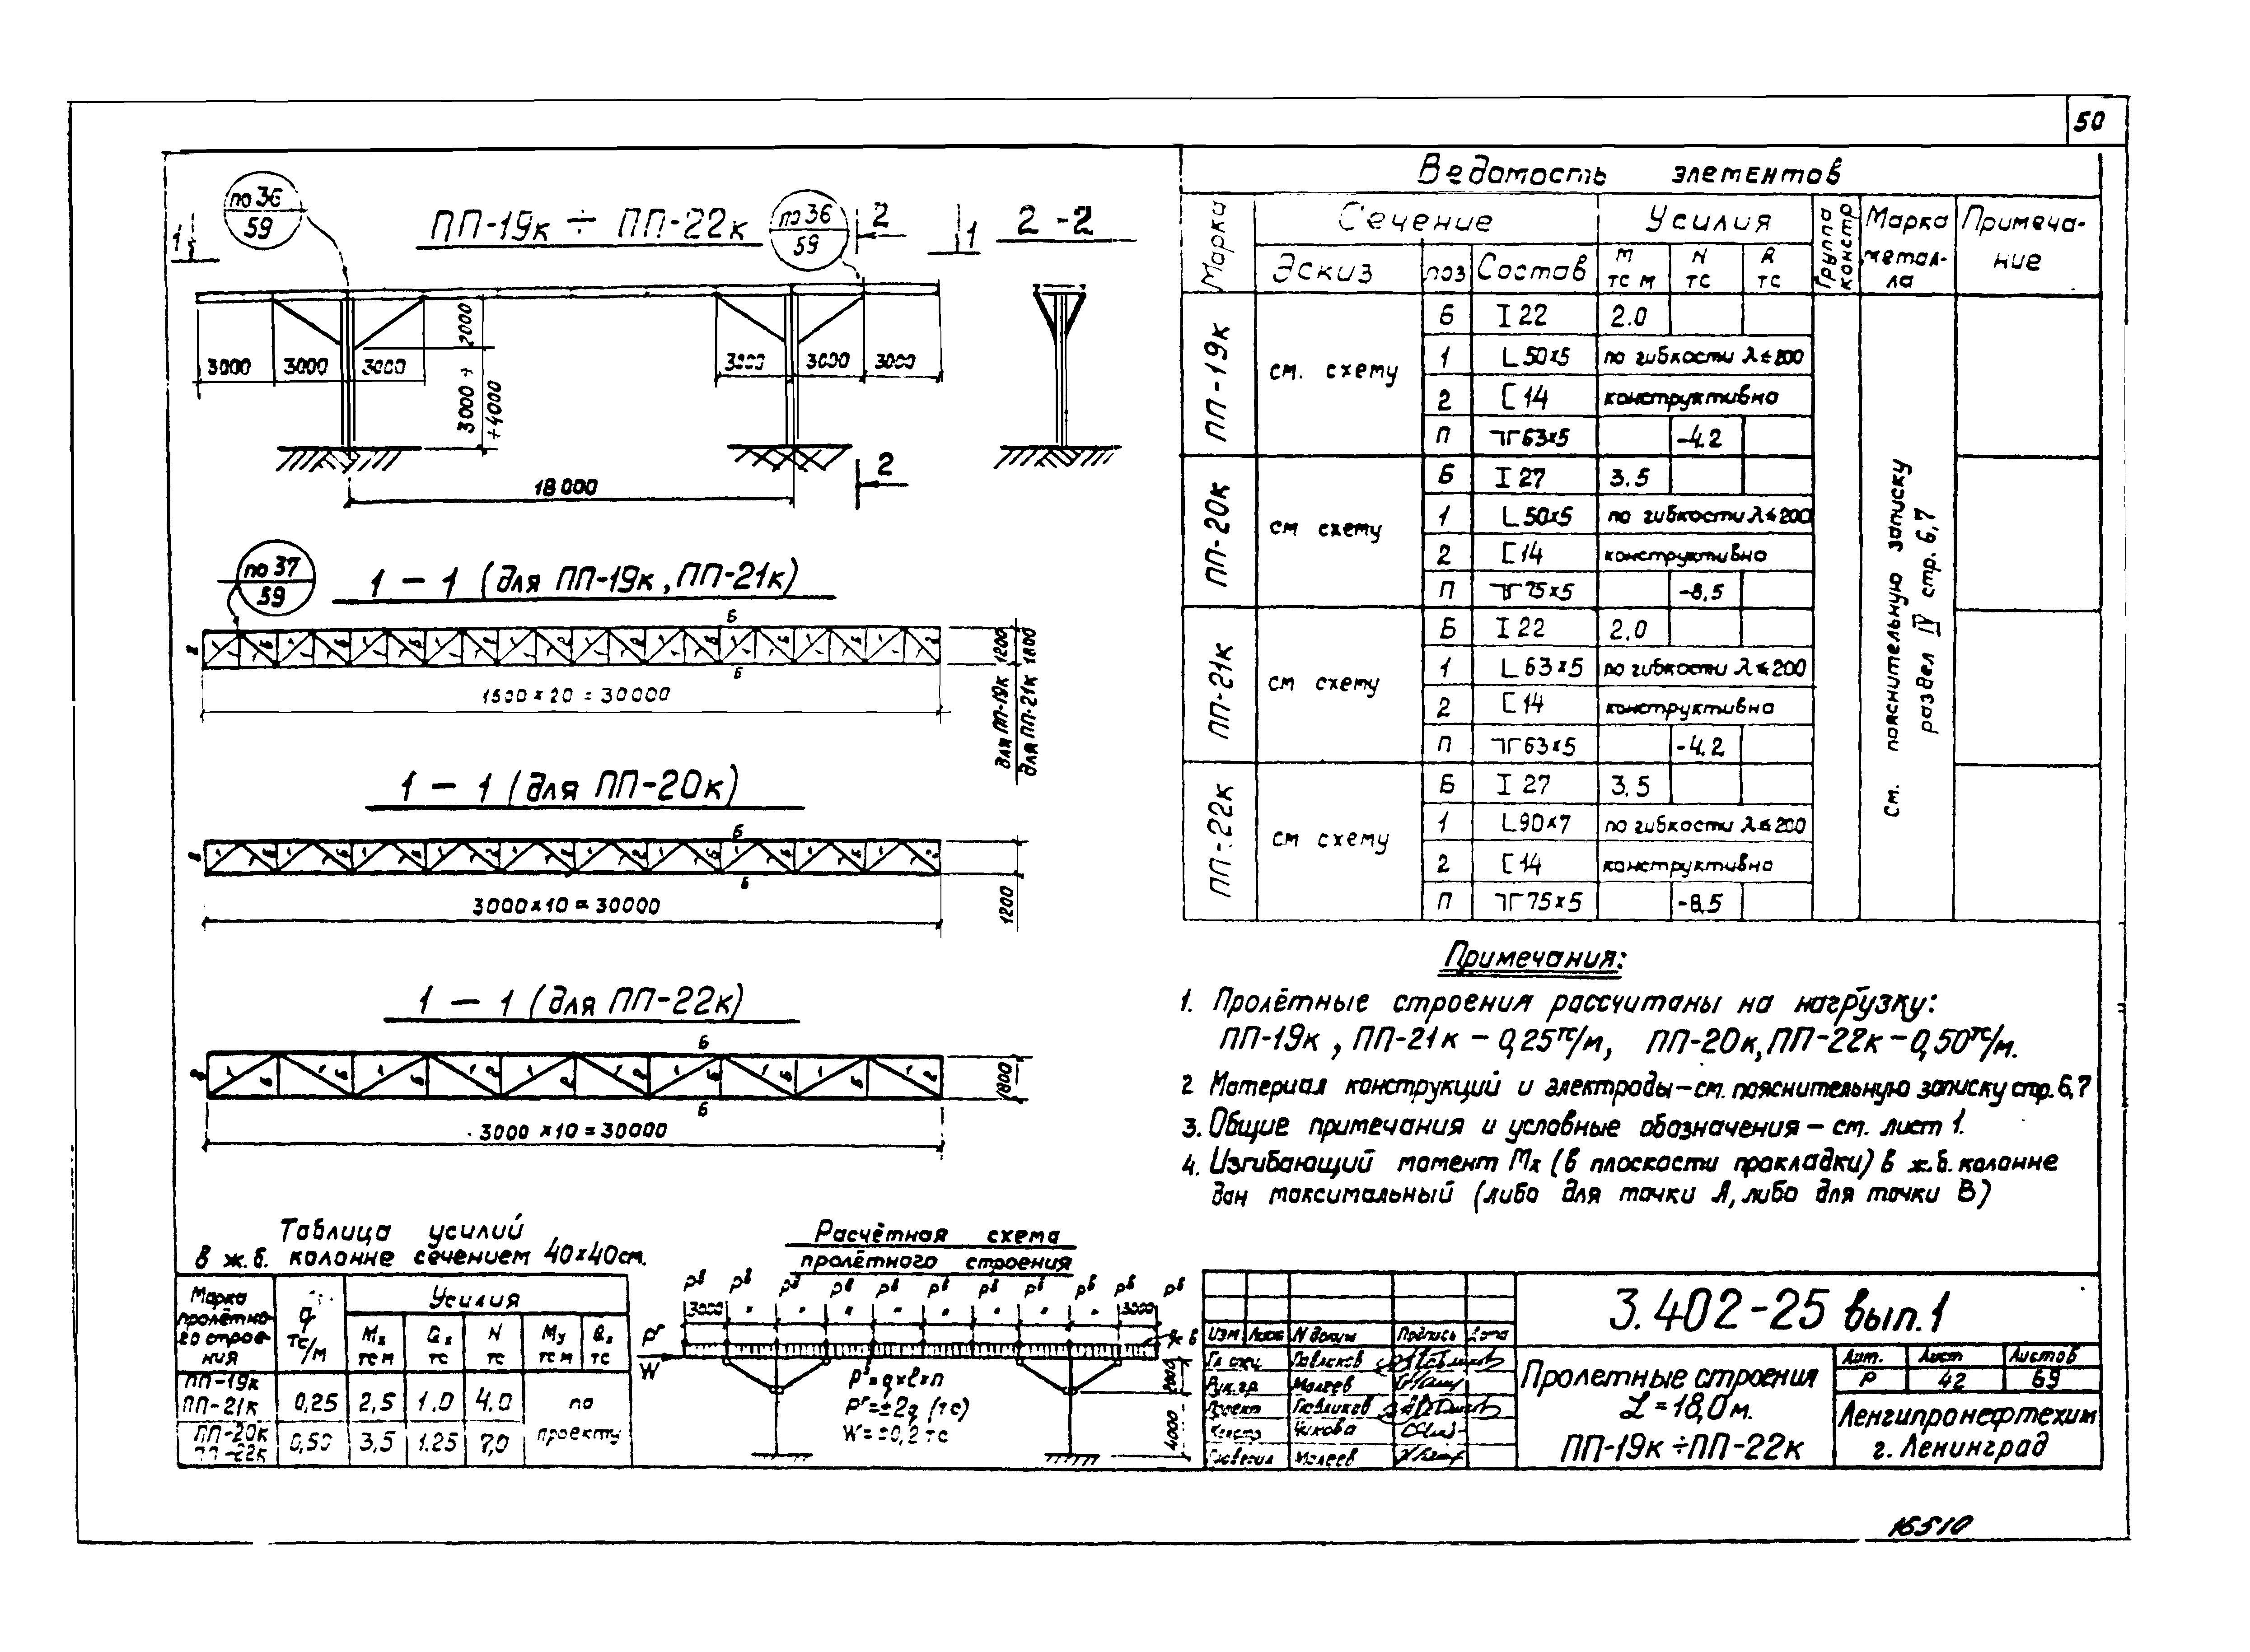 50
по 36
59
ПП-19к ÷ ПП-22к
по 36
59
2
1
1
2 - 2
3000
3000
3000
2000
3000 ÷
÷4000
3000
3000
3000
18 000
2
по 37
59
1 - 1 (для ПП-19к, ПП-21к)
Б
Б
1500 × 20 = 30000
для ПП-19к 1200
для ПП-21к 1800
1 - 1 (для ПП-20к)
Б
Б
3000×10 = 30000
1200
1 - 1 (для ПП-22к)
Б
Б
3000 ×10 = 30000
1800
Ведомость элементов
Марка
Сечение
Усилия
Группа констр
Марка метал-ла
Примеча-ние
Эскиз
поз
Состав
М тс м
N тс
R тс
ПП-19к
см. схему
Б I 22 2.0
1 L 50×5 по гибкости λ≤200
2 [ 14 конструктивно
П ⅂Γ 63×5 -4.2
ПП-20к
см схему
Б I 27 3.5
1 L 50×5 по гибкости λ≤200
2 [ 14 конструктивно
П ⅂Γ 75×5 -8,5
ПП-21к
см схему
Б I 22 2.0
1 L 63×5 по гибкости λ≤200
2 [ 14 конструктивно
П ⅂Γ 63×5 -4.2
ПП-22к
см схему
Б I 27 3.5
1 L 90×7 по гибкости λ≤200
2 [ 14 конструктивно
П ⅂Γ 75×5 -8,5
см. пояснительную записку
раздел IV стр. 6,7
Примечания:
1. Пролётные строения рассчитаны на нагрузку:
ПП-19к, ПП-21к - 0,25тс/м, ПП-20к, ПП-22к - 0,50тс/м.
2 Материал конструкций и электроды - см. пояснительную записку стр. 6,7
3. Общие примечания и условные обозначения - см. лист 1.
4. Изгибающий момент Мх (в плоскости прокладки) в ж.б. колонне
дан максимальный (либо для точки А, либо для точки В)
Таблица усилий
в ж.б. колонне сечением 40×40см.
Марка пролётно-го строе-ния
q тс/м
Усилия
Mx тс м
Qx тс
N тс
My тс м
тс
ПП-19к
ПП-21к 0,25 2,5 1.0 4,0
ПП-20к
ПП-22к 0,50 3,5 1.25 7,0
по
проекту
Расчётная схема
пролётного строения
Pв Pв Pв Pв Pв Pв Pв Pв Pв Pв
3000 " " " " " " " 3000
Pг
W
Pв=q×ℓ×n
Pг=±2q (тс)
W=±0,2 тс
2000
4000
3.402-25 вып.1
Изм Лист N докум Подпись Дата
Гл спец Павликов
Рук.гр Малеев
Проект Павликов
Констр Чикова
Проверил Малеев
Пролетные строения
L = 18,0 м.
ПП-19к ÷ ПП-22к
Лит. Лист Листов
Р 42 69
Ленгипронефтехим
г. Ленинград
16510